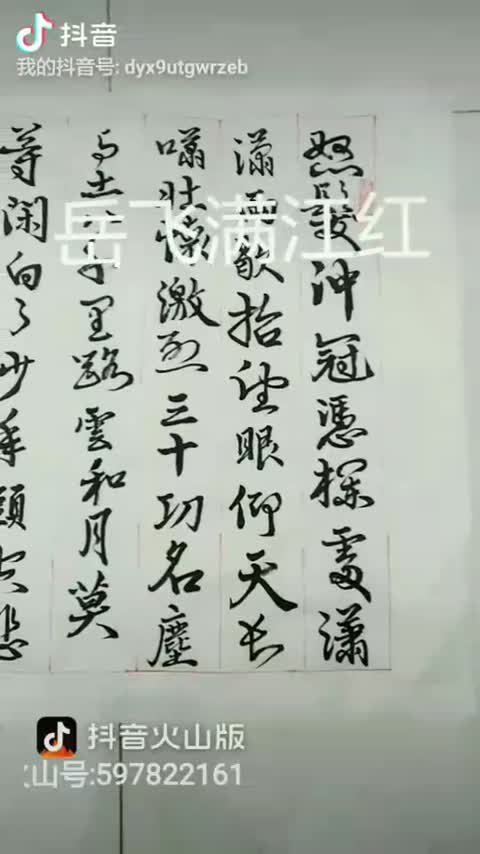 抖音
我的抖音号: dyx9utgwrzeb
岳飞满江红
怒髮沖冠憑欄處瀟
瀟雨歇抬望眼仰天长
嘯壯懷激烈三十功名塵
与土八千里路雲和月莫
等闲白了少年頭空悲
抖音火山版
火山号:597822161